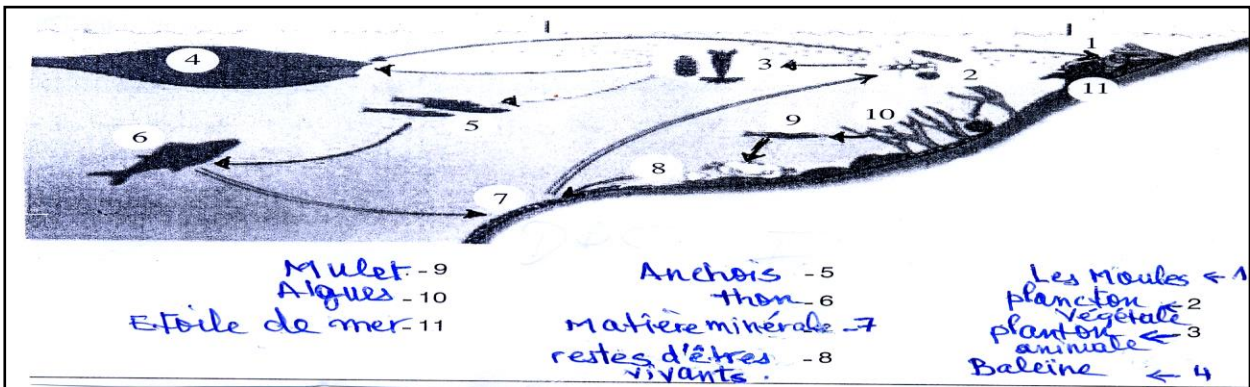 4
3
2
1
11
5
10
9
6
8
7
Mulet - 9
Algues - 10
Etoile de mer - 11
Anchois - 5
thon - 6
Matière minérale - 7
restes d'êtres - 8
vivants.
Les Moules ← 1
plancton ← 2
végétale
plancton ← 3
animale
Baleine ← 4